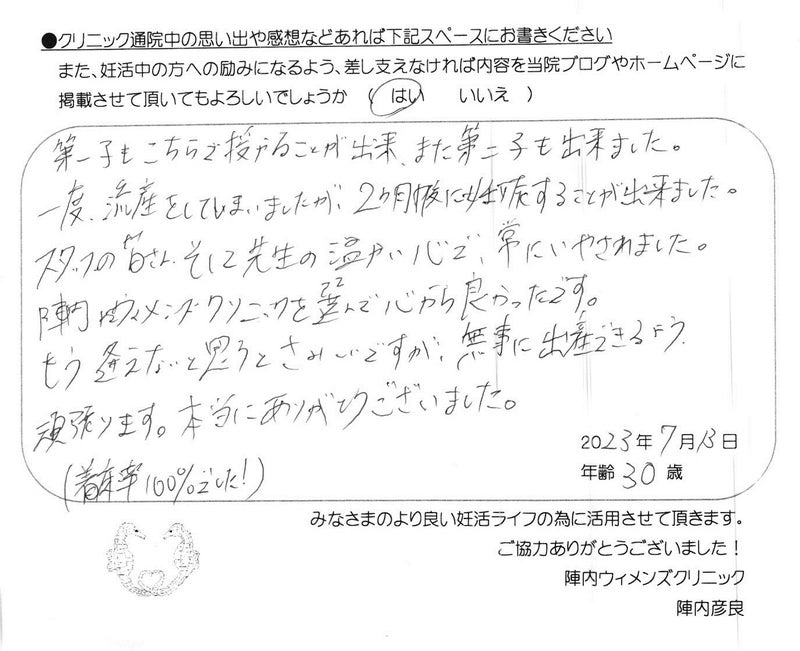 ●クリニック通院中の思い出や感想などあれば下記スペースにお書きください
また、妊活中の方への励みになるよう、差し支えなければ内容を当院ブログやホームページに
掲載させて頂いてもよろしいでしょうか ( はい いいえ )
第一子もこちらで授かることが出来、また第二子も出来ました。
一度、流産をしてしまいましたが、2ヶ月後に妊娠することが出来ました。
スタッフの皆さん、そして先生の温かい心で、常にいやされました。
陣内ウィメンズクリニックを選んで心から良かったです。
もう逢えないと思うとさみしいですが、無事に出産できるよう、
頑張ります。本当にありがとうございました。
(着床率100%でした!)
2023年7月13日
年齢30歳
みなさまのより良い妊活ライフの為に活用させて頂きます。
ご協力ありがとうございました！
陣内ウィメンズクリニック
陣内彦良